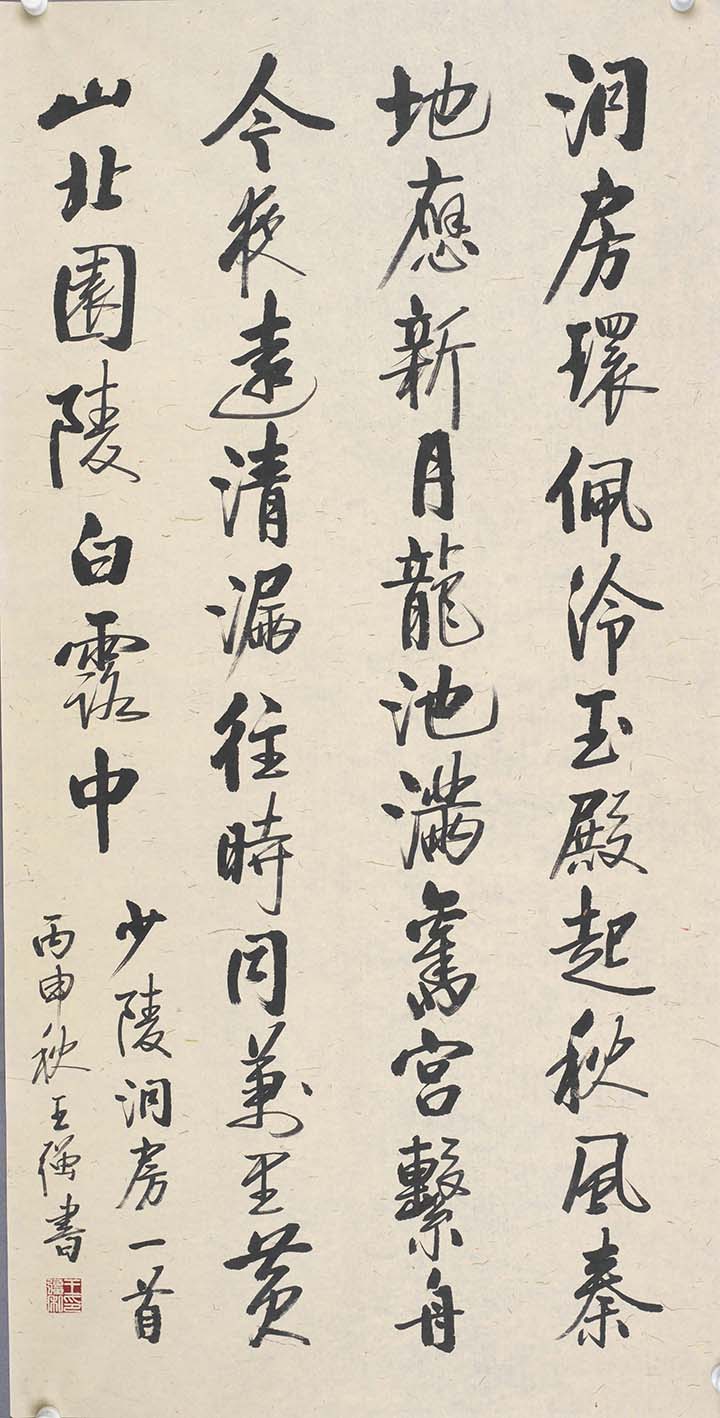 洞房環佩冷玉殿起秋風秦
地應新月龍池滿舊宮繫舟
今夜遠清漏往時同萬里黃
山北園陵白露中
少陵洞房一首
丙申秋王強書